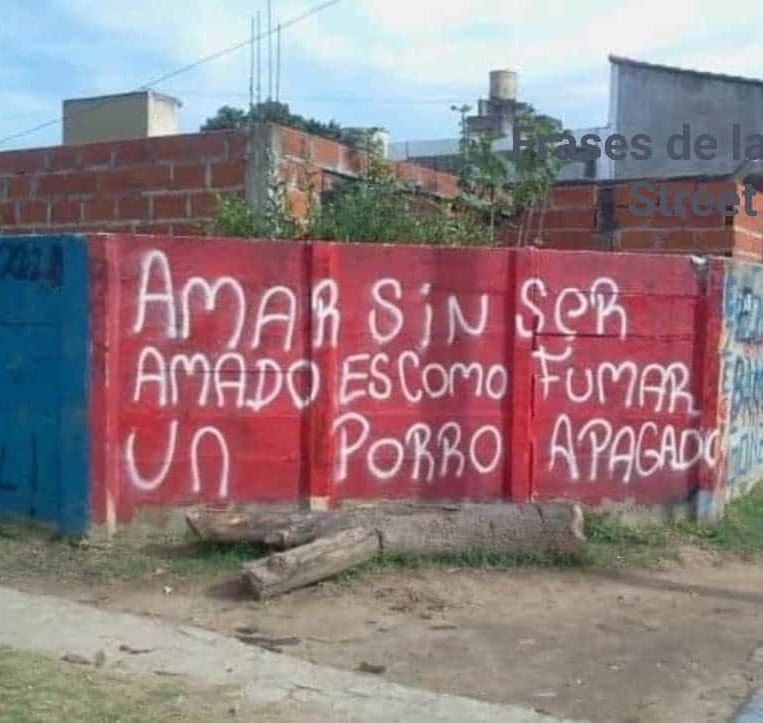 Frases de la
Street
AMAR SiN SeR
AMADO ES COMO FUMAR
Un PORRO APAGADO